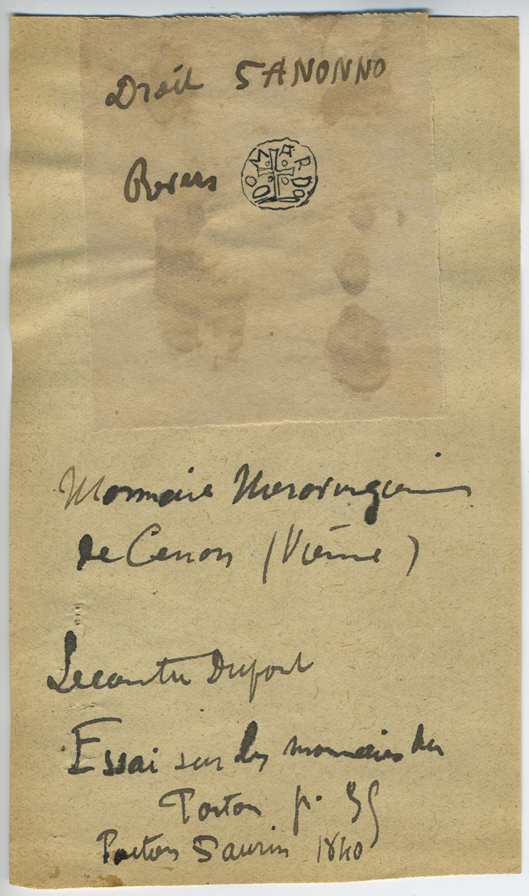 Droit SANONNO
Revers
DOMARDO
Monnaie Merovingienne
de Cenon (Vienne)
Lecointre Dupont
Essai sur les monnaies du
Poitou p.
Poitiers Saurin 1840